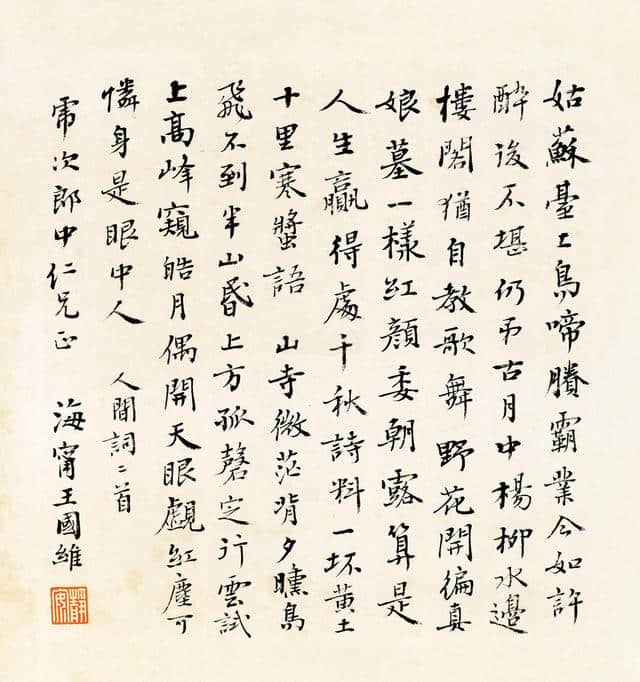 姑蘇臺上烏啼賸霸業今如許
醉後不堪仍弔古月中楊柳水邊
樓閣猶自教歌舞野花開徧真
娘墓一樣紅顏委朝露算是
人生贏得處千秋詩料一坏黃土
十里寒螿語 山寺微茫背夕曛鳥
飛不到半山昏上方孤磬定行雲試
上高峰窺皓月偶開天眼覷紅塵可
憐身是眼中人 人間詞二首
虎次郎中仁兄正 海甯王國維
靜安